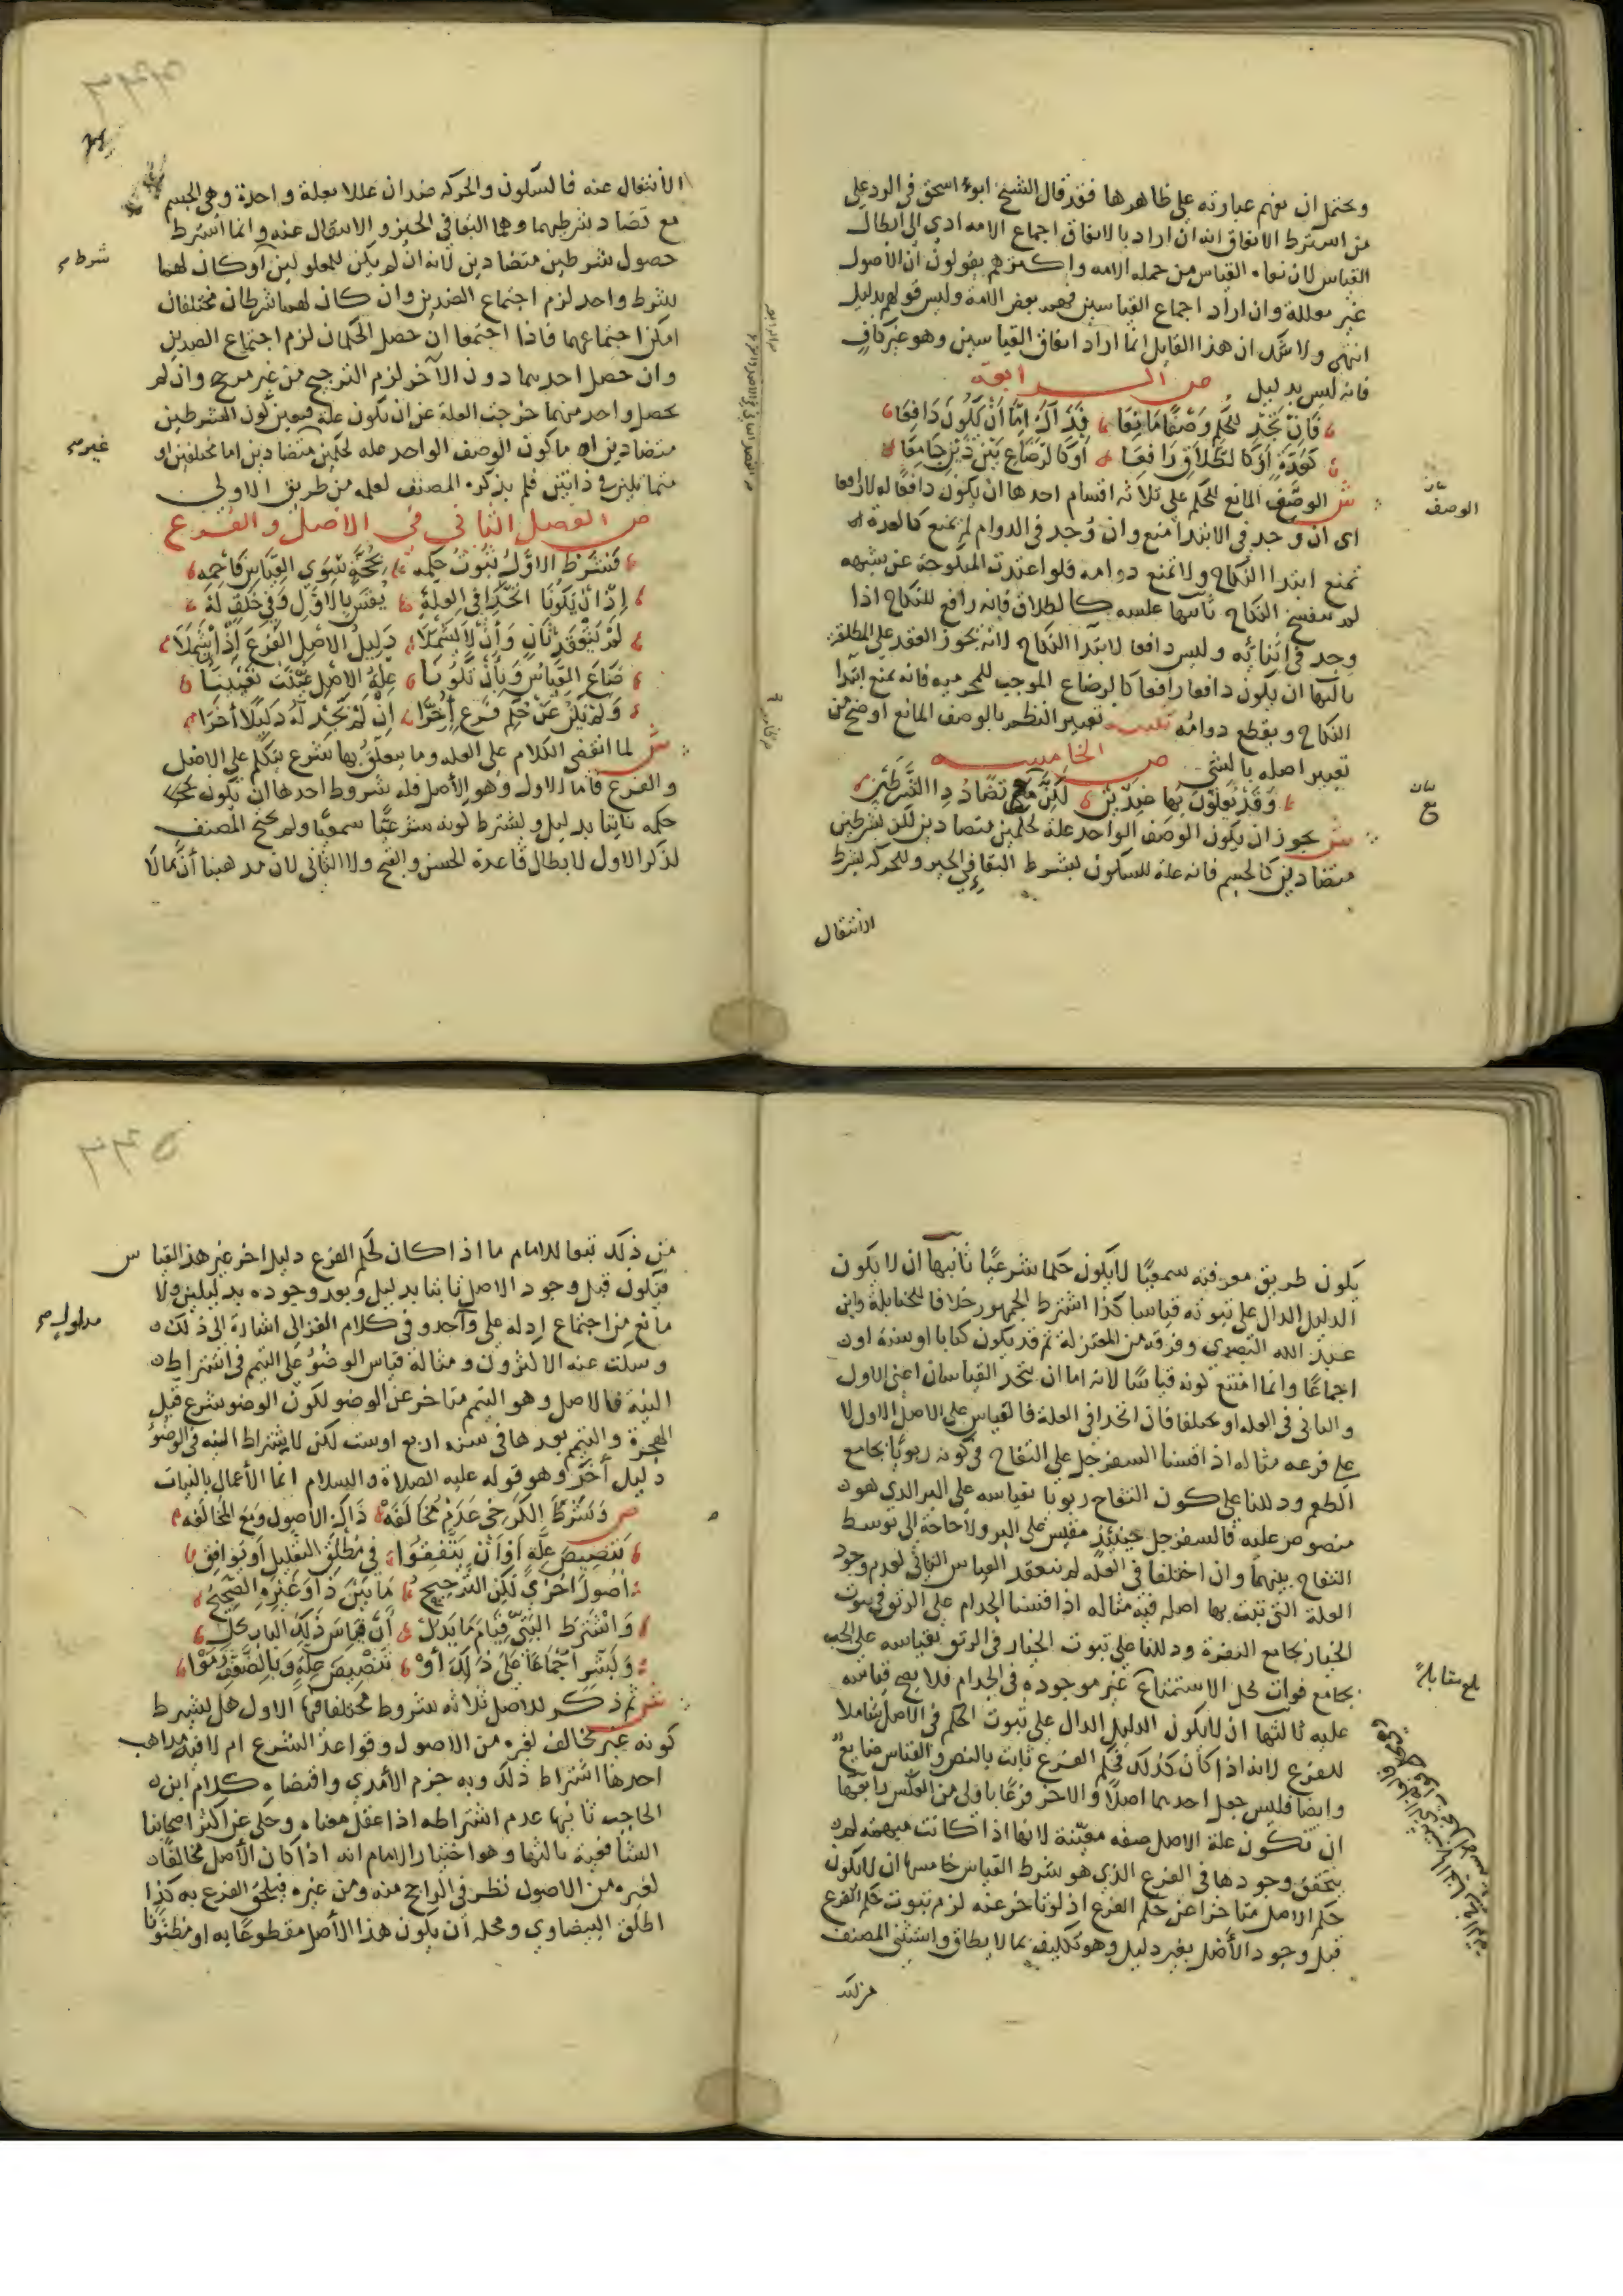 ويحتمل ان نفهم عبارته على ظاهرها فقد قال الشيخ ابو اسحق في الرد على
من اشترط الاتفاق انه ان اراد بالاتفاق اجماع الامة ادى الى ابطال
القياس لان نفاه القياس من جملة الامه واكثرهم يقولون ان الاصول
غير معللة وان اراد اجماع القياسيين فهم بعض الامة وليس قولهم بدليل
انتهى ولا شك ان هذا القايل انما اراد اتفاق القياسيين وهو غير كاف
فانه ليس بدليل ص الرابعة
فان تجد للحكم وصفا مانعا فذاك اما ان يكون دافعا
كعدة او كالطلاق رافعا او كالرضاع بين ذين جامعا
ش الوصف المانع للحكم على ثلاثه اقسام احدها ان يكون دافعا له لا رافعا
اى ان وجد في الابتدا منع وان وجد في الدوام لم يمنع كالعدة
تمنع ابتدا النكاح ولا تمنع دوامه فلو اعتدت المنكوحة عن شبهه
لم ينفسخ النكاح ثانيها عكسه كالطلاق فانه رافع للنكاح اذا
وجد في اثنائه وليس دافعا لابتدا النكاح لانه يجوز العقد على المطلقة
ثالثها ان يكون دافعا رافعا كالرضاع الموجب للمحرميه فانه يمنع ابتدا
النكاح ويقطع دوامه تنبيه تعبير النظم بالوصف المانع اوضح من
تعبير اصله بالشى ص الخامسه
وقد يعللون بها ضدين لكن مع تضاد ذا الشرطين
ش يجوز ان يكون الوصف الواحد علة لحكمين متضادين لكن بشرطين
متضادين كالجسم فانه علة للسكون بشرط البقا في الحيز وللحركه بشرط
الانتقال
الوصف
الانتقال عنه فالسكون والحركه ضدان عللا بعلة واحدة وهي الجسم
مع تضاد شرطيهما وهما البقا في الحيز والانتقال عنه وانما اشترط
حصول شرطين متضادين لانه ان لم يكن للمعلولين او كان لهما
شرط واحد لزم اجتماع الضدين وان كان لهما شرطان مختلفان
امكن اجتماعهما فاذا اجتمعا ان حصل الحكمان لزم اجتماع الضدين
وان حصل احدهما دون الآخر لزم الترجيح من غير مرجح وان لم
يحصل واحد منهما خرجت العلة عن ان تكون علة فتعين كون الشرطين
متضادين اما كون الوصف الواحد عله لحكمين متضادين اما مختلفين او
متماثلين في ذاتين فلم يذكره المصنف لعلمه من طريق الاولى
ص الفصل الثاني في الاصل والفرع
فشرط الاول ثبوت حكمه بحجة سوى القياس فاحمه
اذ ان يكونا اتحدا في العلة يقس بالاول وفي خلف له
لم ينعقد ثان وان لا يشملا دليل الاصل الفرع اذ ان شملا
ضاع القياس وبان تكونا علة الاصل عينت تعيينا
ولم يكن عن حكم فرع اخرا ان لم تجد له دليلا اخرا
ش لما انقضى الكلام على العله وما يتعلق بها شرع يتكلم على الاصل
والفرع فاما الاول وهو الأصل فله شروط احدها ان يكون
حكمه ثابتا بدليل ويشترط كونه شرعيا سمعيا ولم يحتج المصنف
لذكر الاول لابطال قاعدة الحسن والقبح ولا الثاني لان مذهبنا أن مالا
شرط
غير
يكون طريق معرفته سمعيا لا يكون حكما شرعيا ثانيها ان لا يكون
الدليل الدال على ثبوته قياسا كذا اشترط الجمهور خلافا للحنابلة وابى
عبد الله البصري وفرقة من المعتزلة ثم قد يكون كتابا او سنة او
اجماعا وانما امتنع كونه قياسا لانه اما ان يتحد القياسان اعنى الاول
والثاني في العله او يختلفا فان اتحدا في العلة فالقياس على الاصل الاول لا
على فرعه مثاله اذا قسنا السفرجل على التفاح في كونه ربويا بجامع
الطعم ودللنا على كون التفاح ربويا بقياسه على البر الذي هو
منصوص عليه فالسفرجل حينئذ مقيس على البر ولا حاجة الى توسط
التفاح بينهما وان اختلفا في العله لم ينعقد القياس الثاني لعدم وجود
العلة التي ثبت بها اصله فيه مثاله اذا قسنا الجذام على الرتق في ثبوت
الخيار بجامع النفرة ودللنا على ثبوت الخيار في الرتق بقياسه على الجب
بجامع فوات محل الاستمتاع غير موجوده في الجذام فلا يصح قياسه
عليه ثالثها ان لا يكون الدليل الدال على ثبوت الحكم في الاصل شاملا
للفرع لانه اذا كان كذلك فحكم الفرع ثابت بالنص والقياس ضايع
وايضا فليس جعل احدهما اصلا والاخر فرعا باولى من العكس رابعها
ان تكون علة الاصل صفه معينة لانها اذا كانت مبهمة لم
يتحقق وجودها في الفرع الذي هو شرط القياس خامسها ان لا يكون
حكم الاصل متاخرا عن حكم الفرع اذ لو تاخر عنه لزم ثبوت حكم الفرع
قبل وجود الأصل بغير دليل وهو تكليف بما لا يطاق واستثنى المصنف
من ذلك
بلغ مقابلة
من ذلك تبعا للامام ما اذا كان لحكم الفرع دليل اخر غير هذا القياس
فيكون قبل وجود الاصل ثابتا بدليل وبعد وجوده بدليلين ولا
مانع من اجتماع ادله على واحد وفي كلام الغزالى اشارة الى ذلك
وسكت عنه الاكثرون ومثاله قياس الوضوء على التيمم في اشتراط
النية فالاصل وهو التيمم متاخر عن الوضو لكون الوضو شرع قبل
الهجرة والتيمم بعدها في سنة اربع اوست لكن لاشتراط النيه في الوضوء
دليل أخر وهو قوله عليه الصلاة والسلام انما الأعمال بالنيات
ص وشرط الكرخي عدم مخالفه ذاك الاصول ومع المخالفه
تنصيص علة او ان يتفقوا في مطلق التعليل او يوافق
اصولا اخرى لكن الترجيح ما بين ذا وغيره الصحيح
واشترط البتي قيام ما يدل أن قياس ذلك الباب يحل
وبشر اجماعا على ذلك او تنصيص علة وبالضعف رموا
ش ثم ذكر للاصل ثلاثه شروط مختلفا فيها الاول هل يشترط
كونه غير مخالف لغيره من الاصول وقواعد الشرع ام لا فيه مذاهب
احدها اشتراط ذلك وبه جزم الأمدي واقتضاه كلام ابن
الحاجب ثانيها عدم اشتراطه اذا عقل معناه وحكي عن اكثر اصحابنا
الشافعية ثالثها وهو اختيار الامام انه اذا كان الأصل مخالفا
لغيره من الاصول نظر في الراجح منه ومن غيره فيلحق الفرع به كذا
اطلق البيضاوي ومحله أن يكون هذا الاصل مقطوعا به او مظنونا
مدلول